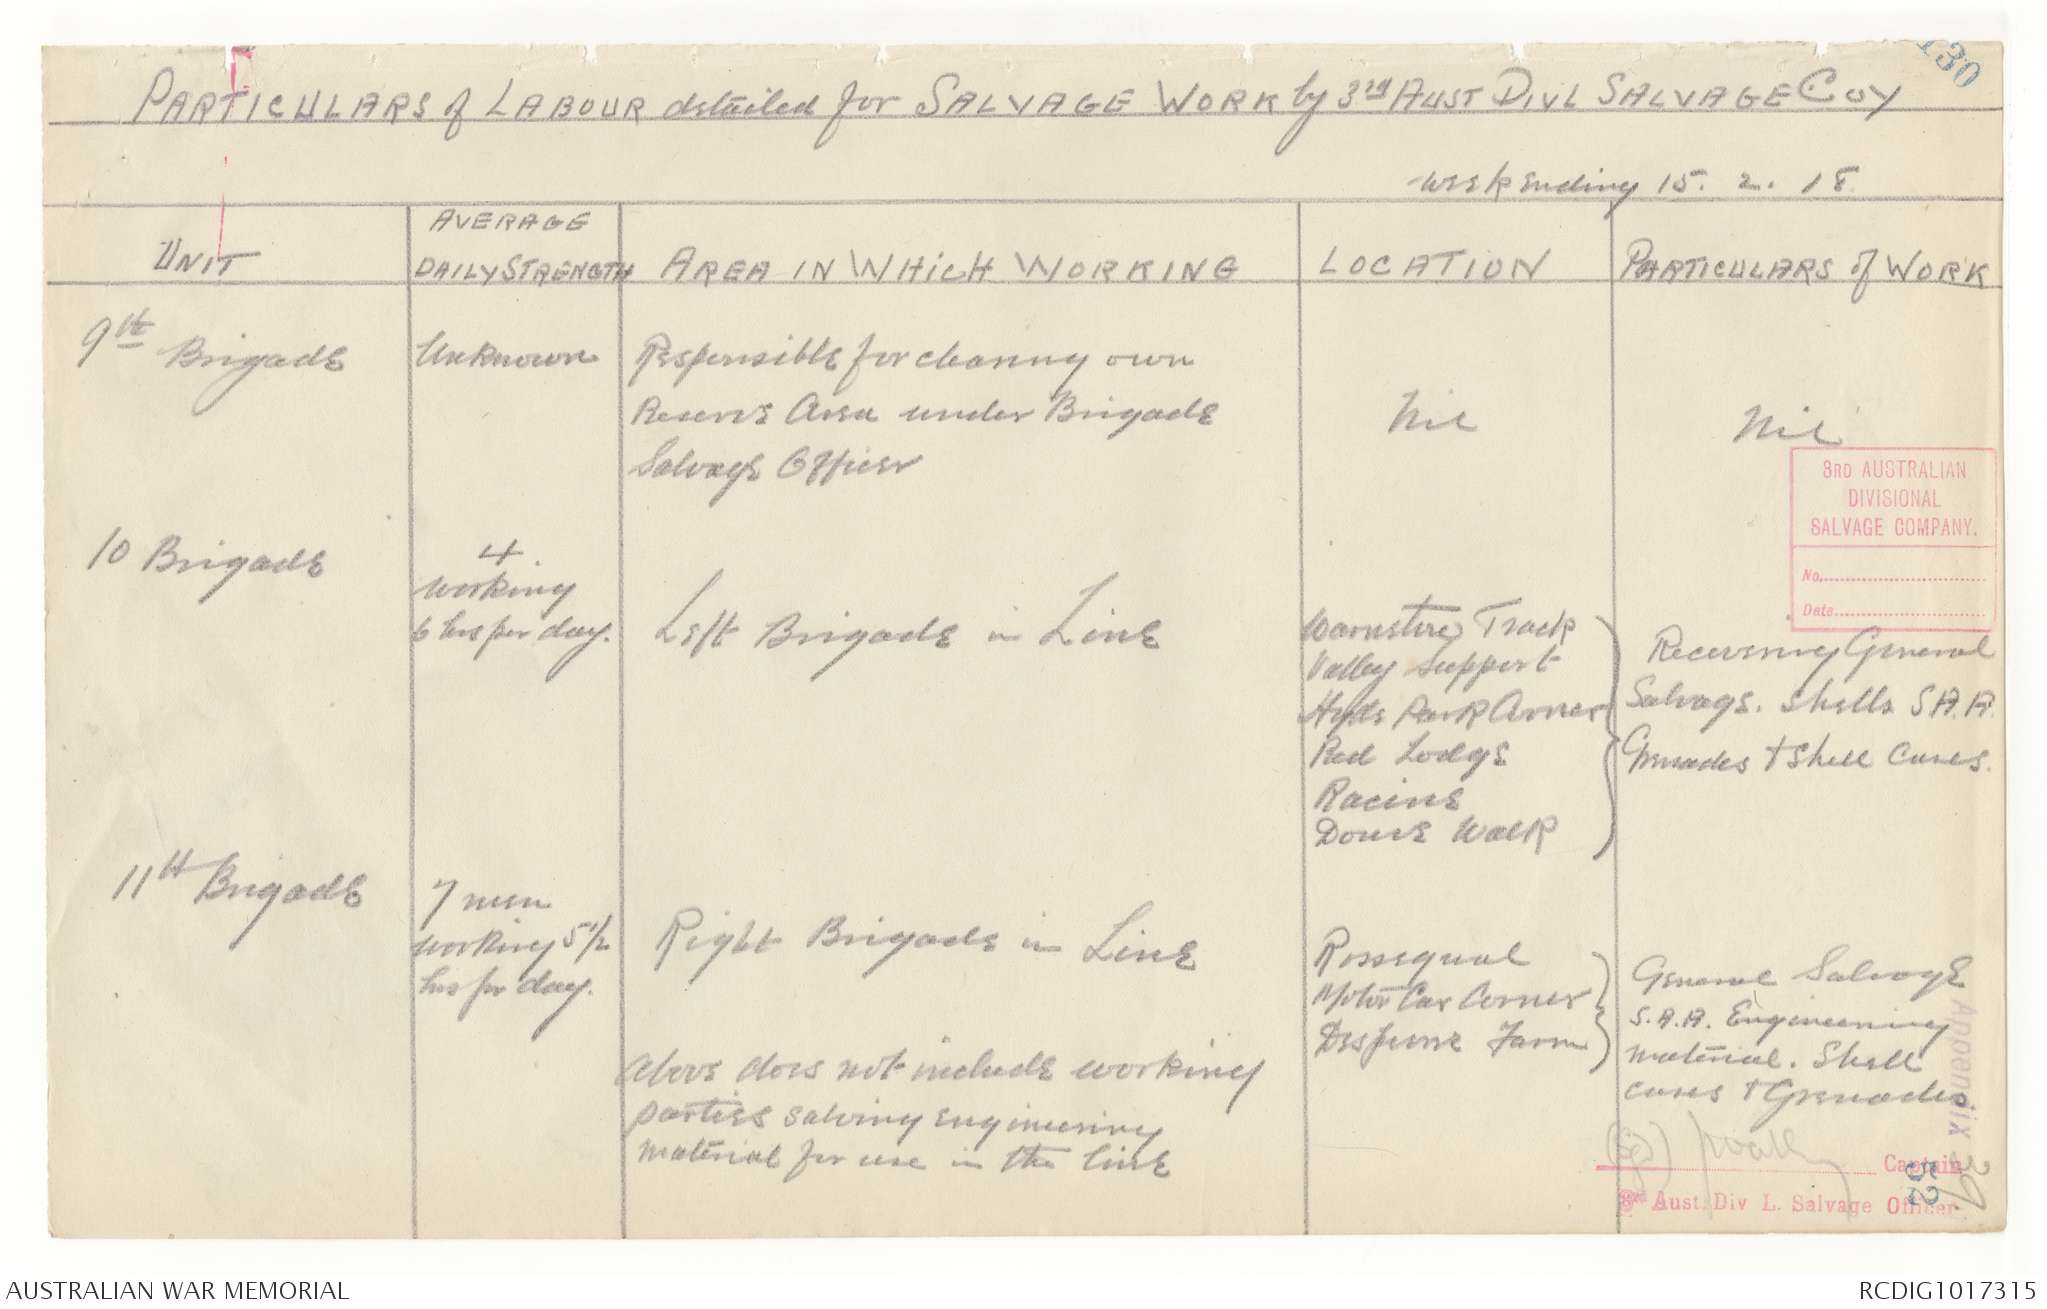 130
PARTICULARS of LABOUR detailed for SALVAGE WORK by 3rd AUST DIVL SALVAGE COY
week ending 15. 2. 18
UNIT
AVERAGE
DAILY STRENGTH
AREA IN WHICH WORKING
LOCATION
PARTICULARS of WORK
9th Brigade
Unknown
Responsible for cleaning own
Reserve Area under Brigade
Salvage Officer
Nil
Nil
3RD AUSTRALIAN
DIVISIONAL
SALVAGE COMPANY.
No.
Date
10 Brigade
4
working
6 hrs per day.
Left Brigade in Line
Track
Valley Support
Hyde Park Corner
Red Lodge
Racine
Douve Walk
Recovering General
Salvage. Shells S.A.A.
Grenades & Shell Cases.
11th Brigade
7 men
working 5 1/2
hrs per day.
Right Brigade in Line
Rossegnol
Motor Car Corner
Despierre Farm
General Salvage
S.A.A. Engineering
material. Shell
cases & Grenades.
Above does not include working
parties salving engineering
material for use in the line
(sgd)
Captain
3rd Aust. Div L. Salvage Officer
Appendix 39
32
AUSTRALIAN WAR MEMORIAL
RCDIG1017315